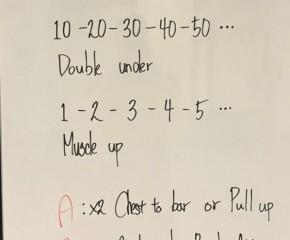 10 - 20 - 30 - 40 - 50 ...
Double under
1 - 2 - 3 - 4 - 5 ...
Muscle up
A : x2 Chest to bar or Pull up